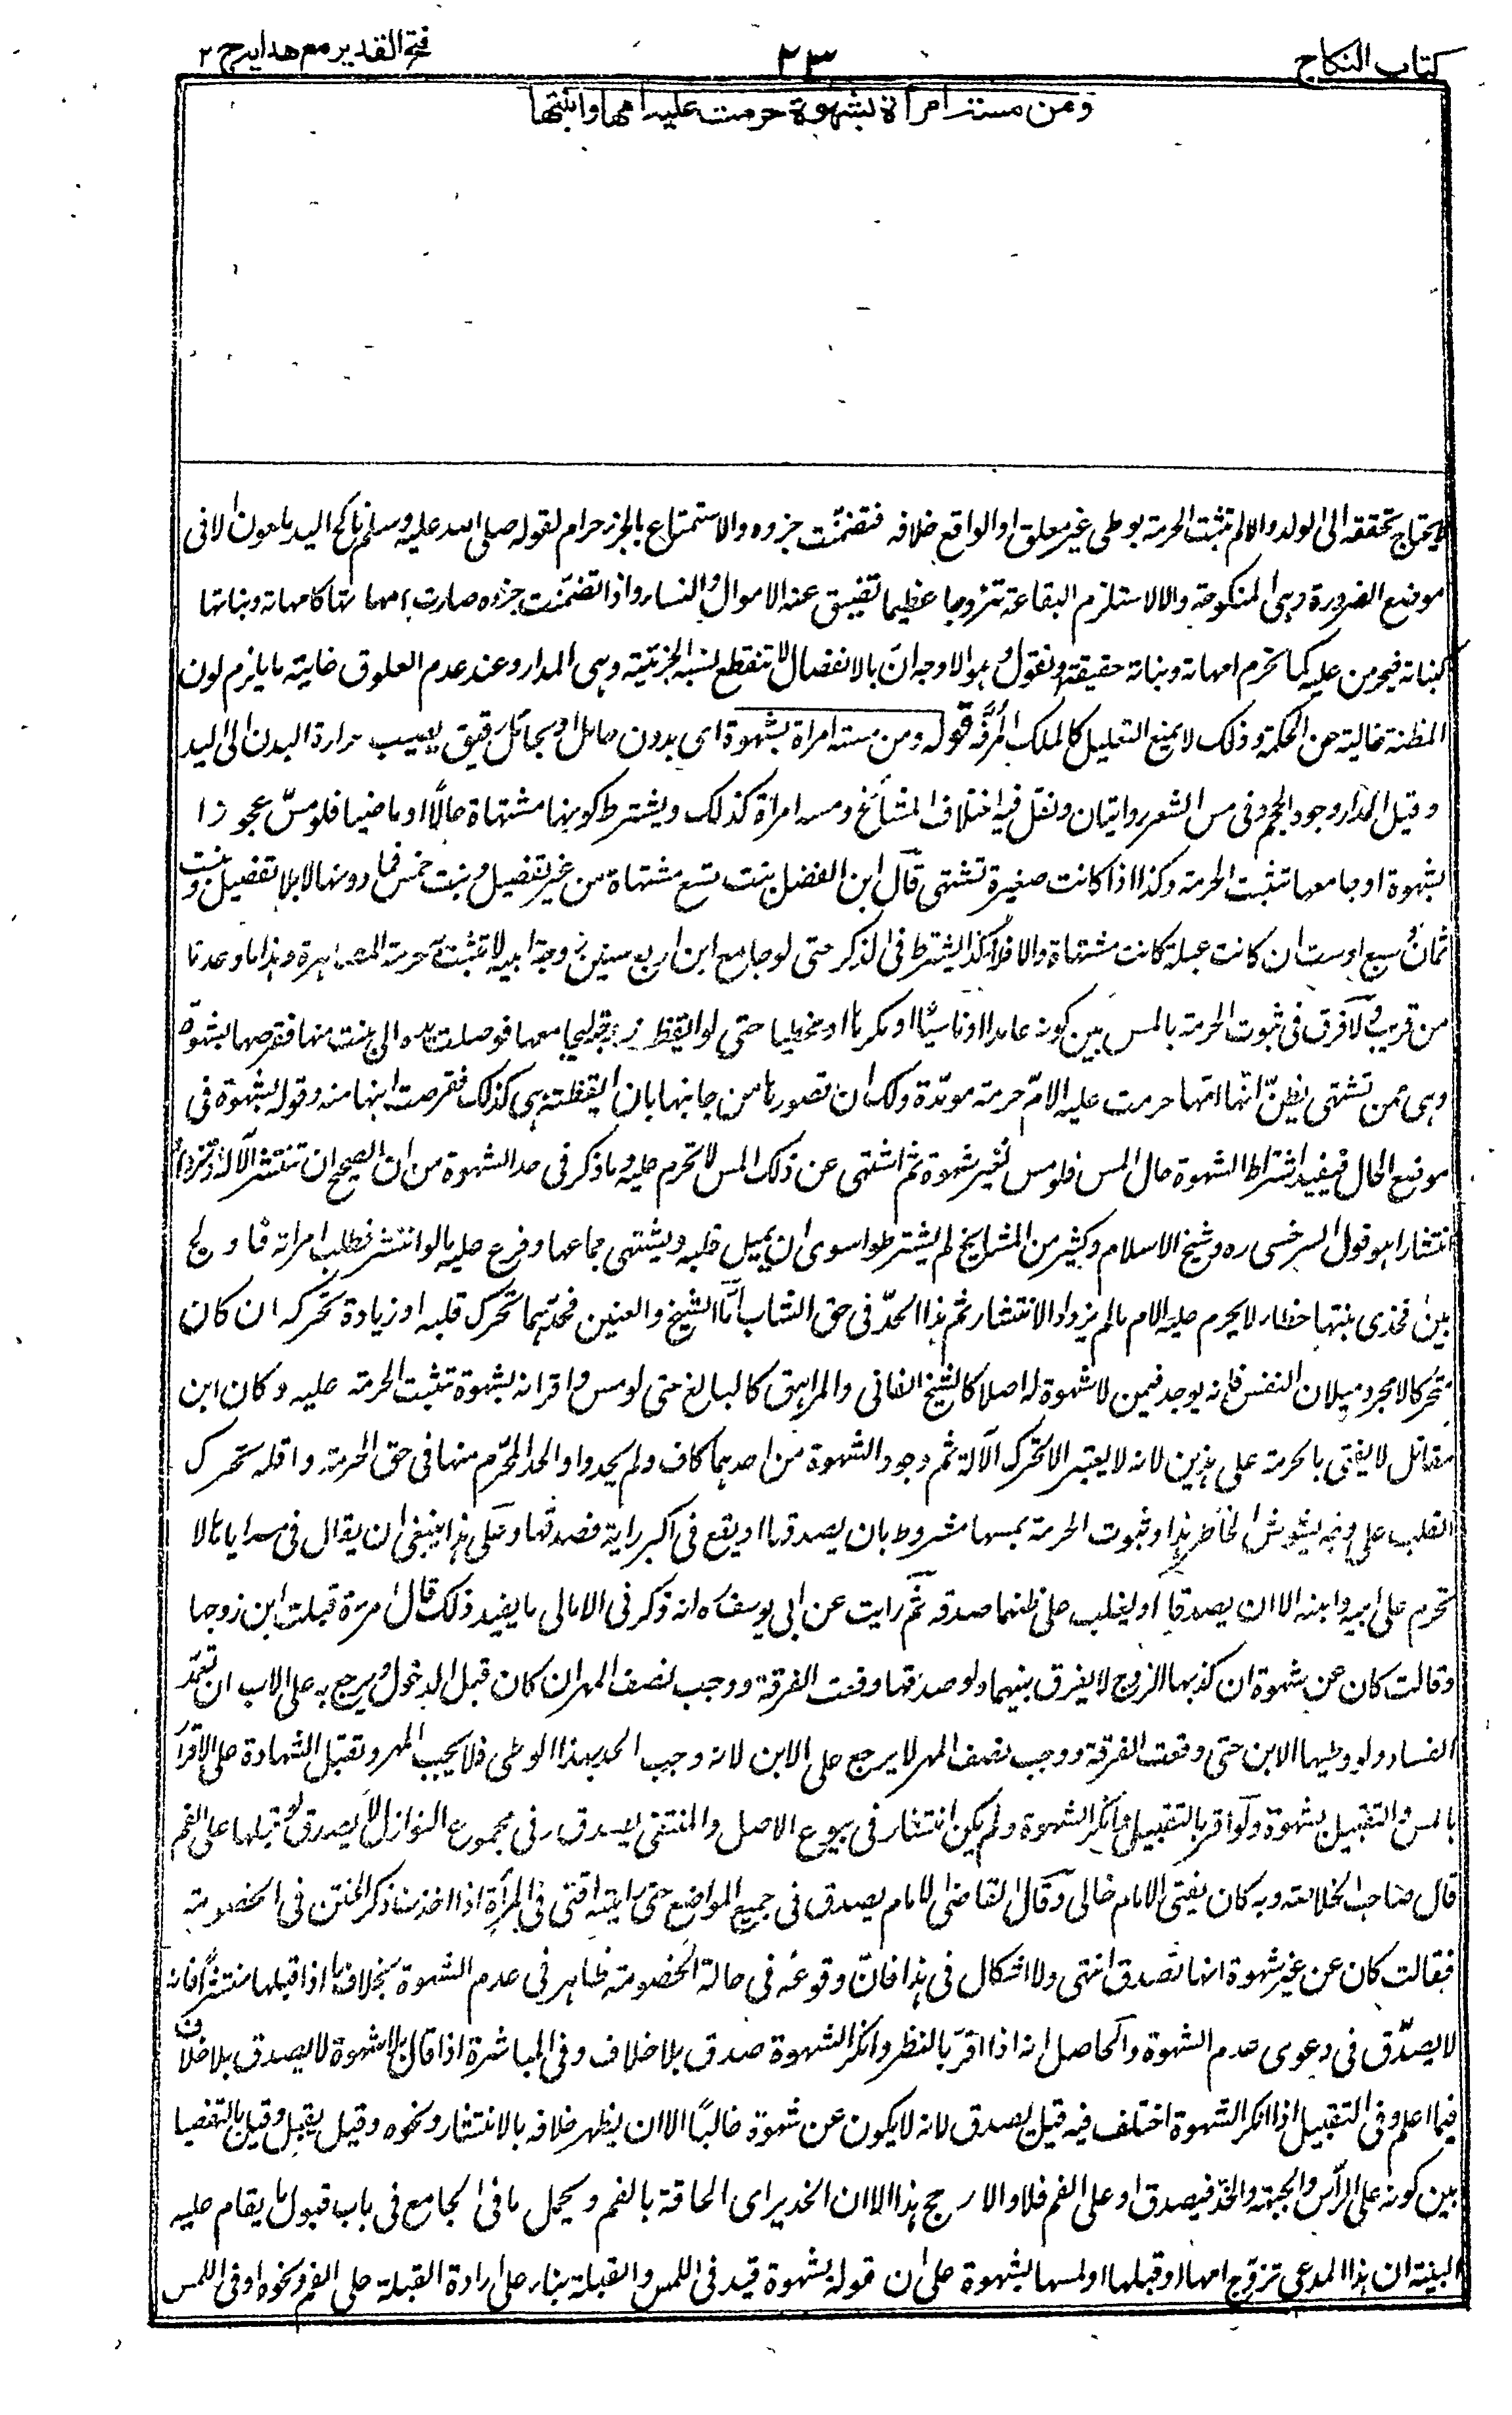 كتاب النكاح
٢٣
فتح القدير مع هدايه ج ٢
ومن مسته امرأة بشهوة حرمت عليه امها وابنتها
لا يحتاج تحققه الى الولد والا لم تثبت الحرمة بوطى غير معلق والواقع خلافه فتضمنت جزءه والاستمتاع بالجزء حرام لقوله صلى الله عليه وسلم ناكح اليد ملعون الا فى
موضع الضرورة وهى المنكوحة والا لاستلزم البقاء عدة تزوجها عظيما تضيق عنه الاموال والنساء واذا تضمنت جزءه صارت امهاتها كامهاته وبناتها
كبناته فيحرمن عليه كما تحرم امهاته وبناته حقيقة ونقول وهو الاوجه ان بالانفصال لا تنقطع نسبة الجزئية وهى المدار وعند عدم العلوق غاية ما يلزم كون
المظنة خالية عن الحكمة وذلك لا يمنع التعليل كالملك المرفه قوله ومن مسته امرأة بشهوة اى بدون حائل او بحائل رقيق يصيب حرارة البدن الى اليد
وقيل المدار وجود الحجم وفى مس الشعر روايتان ونقل فيه اختلاف المشائخ ومسه امرأة كذلك ويشترط كونها مشتهاة حالا او ماضيا فلو مس عجوزا
بشهوة او جامعها تثبت الحرمة وكذا اذا كانت صغيرة تشتهى قال ابن الفضل بنت تسع مشتهاة من غير تفصيل وبنت خمس فما دونها لا بلا تفصيل وبنت
ثمان وسبع او ست ان كانت عبلة كانت مشتهاة والا فلا وكذا يشترط فى الذكر حتى لو جامع ابن اربع سنين زوجة ابيه لا تثبت حرمة المصاهرة وهذا ما وعدنا
من قريب ولا فرق فى ثبوت الحرمة بالمس بين كونه عامدا او ناسيا او مكرها او مخطيا حتى لو ايقظ زوجته ليجامعها فوصلت يده الى بنته منها فقرصها بشهوة
وهى ممن تشتهى يظن انها امها حرمت عليه الام حرمة مؤبدة ولك ان تصورها من جانبها بان ايقظته هى كذلك فقرصت ابنها منه وقوله بشهوة فى
موضع الحال فيفيد اشتراط الشهوة حال المس فلو مس بغير شهوة ثم اشتهى عن ذلك المس لا تحرم عليه وما ذكر فى حد الشهوة من ان الصحيح ان تنتشر الآلة وتزداد
انتشارا هو قول السرخسى ره وشيخ الاسلام وكثير من المشايخ لم يشترطوا سوى ان يميل قلبه ويشتهى جماعها وفرع عليه ما لو انتشر فطلب امراته فاولج
بين فخذى بنتها خطاء لا يحرم عليه الام ما لم يزدد الانتشار ثم هذا الحد فى حق الشاب اما الشيخ والعنين فحدهما تحرك قلبه او زيادة تحركه ان كان
متحركا لا مجرد ميلان النفس فانه يوجد فيمن لا شهوة له اصلا كالشيخ الفانى والمراهق كالبالغ حتى لو مس واقر انه بشهوة تثبت الحرمة عليه وكان ابن
مقاتل لا يفتى بالحرمة على هذين لانه لا يعتبر الا تحرك الآلة ثم وجود الشهوة من احدهما كاف ولم يحدوا الحد المحرم منها فى حق الحرمة واقله تحرك
القلب على وجه يشوش الخاطر هذا وثبوت الحرمة بمسها مشروط بان يصدقها او يقع فى اكبر رايه صدقها وعلى هذا ينبغى ان يقال فى مسه اياها لا
تحرم على ابيه وابنه الا ان يصدقاه او يغلب على ظنهما صدقه ثم رايت عن ابى يوسف ره انه ذكر فى الامالى ما يفيد ذلك قال امرأة قبلت ابن زوجها
وقالت كان عن شهوة ان كذبها الزوج لا يفرق بينهما ولو صدقها وقعت الفرقة ووجب نصف المهر ان كان قبل الدخول ويرجع به على الاب ان تعمد
الفساد ولو وطيها الابن حتى وقعت الفرقة ووجب نصف المهر لا يرجع على الابن لانه وجب الحد بهذا الوطى فلا يجب المهر وتقبل الشهادة على الاقرار
بالمس والتقبيل بشهوة ولو اقر بالتقبيل وانكر الشهوة ولم يكن انتشار فى بيوع الاصل والمنتقى يصدق وفى مجموع النوازل لا يصدق لو قبلها على الفم
قال صاحب الخلاصة وبه كان يفتى الامام خالى وقال القاضى الامام يصدق فى جميع المواضع حتى رايته افتى فى المرأة اذا اخذت ذكر الختن فى الخصومة
فقالت كان عن غير شهوة انها تصدق انتهى ولا اشكال فى هذا فان وقوعه فى حالة الخصومة ظاهر فى عدم الشهوة بخلاف ما اذا قبلها منتشرا فانه
لا يصدق فى دعوى عدم الشهوة والحاصل انه اذا اقر بالنظر وانكر الشهوة صدق بلا خلاف وفى المباشرة اذا قال بلا شهوة لا يصدق بلا خلاف
فيما اعلم وفى التقبيل اذا انكر الشهوة اختلف فيه قيل يصدق لانه لا يكون عن شهوة غالبا الا ان يظهر خلافه بالانتشار ونحوه وقيل يقبل وقيل بالتفصيل
بين كونه على الرأس والجبهة والخد فيصدق او على الفم فلا والارجح هذا الا ان الخد يراى الحاقه بالفم ويحمل ما فى الجامع فى باب قبول ما يقام عليه
البينة ان هذا المدعى تزوج امها او قبلها او لمسها بشهوة على ان قوله بشهوة قيد فى اللمس والقبلة بناء على ارادة القبلة على الفم ونحوه او فى اللمس